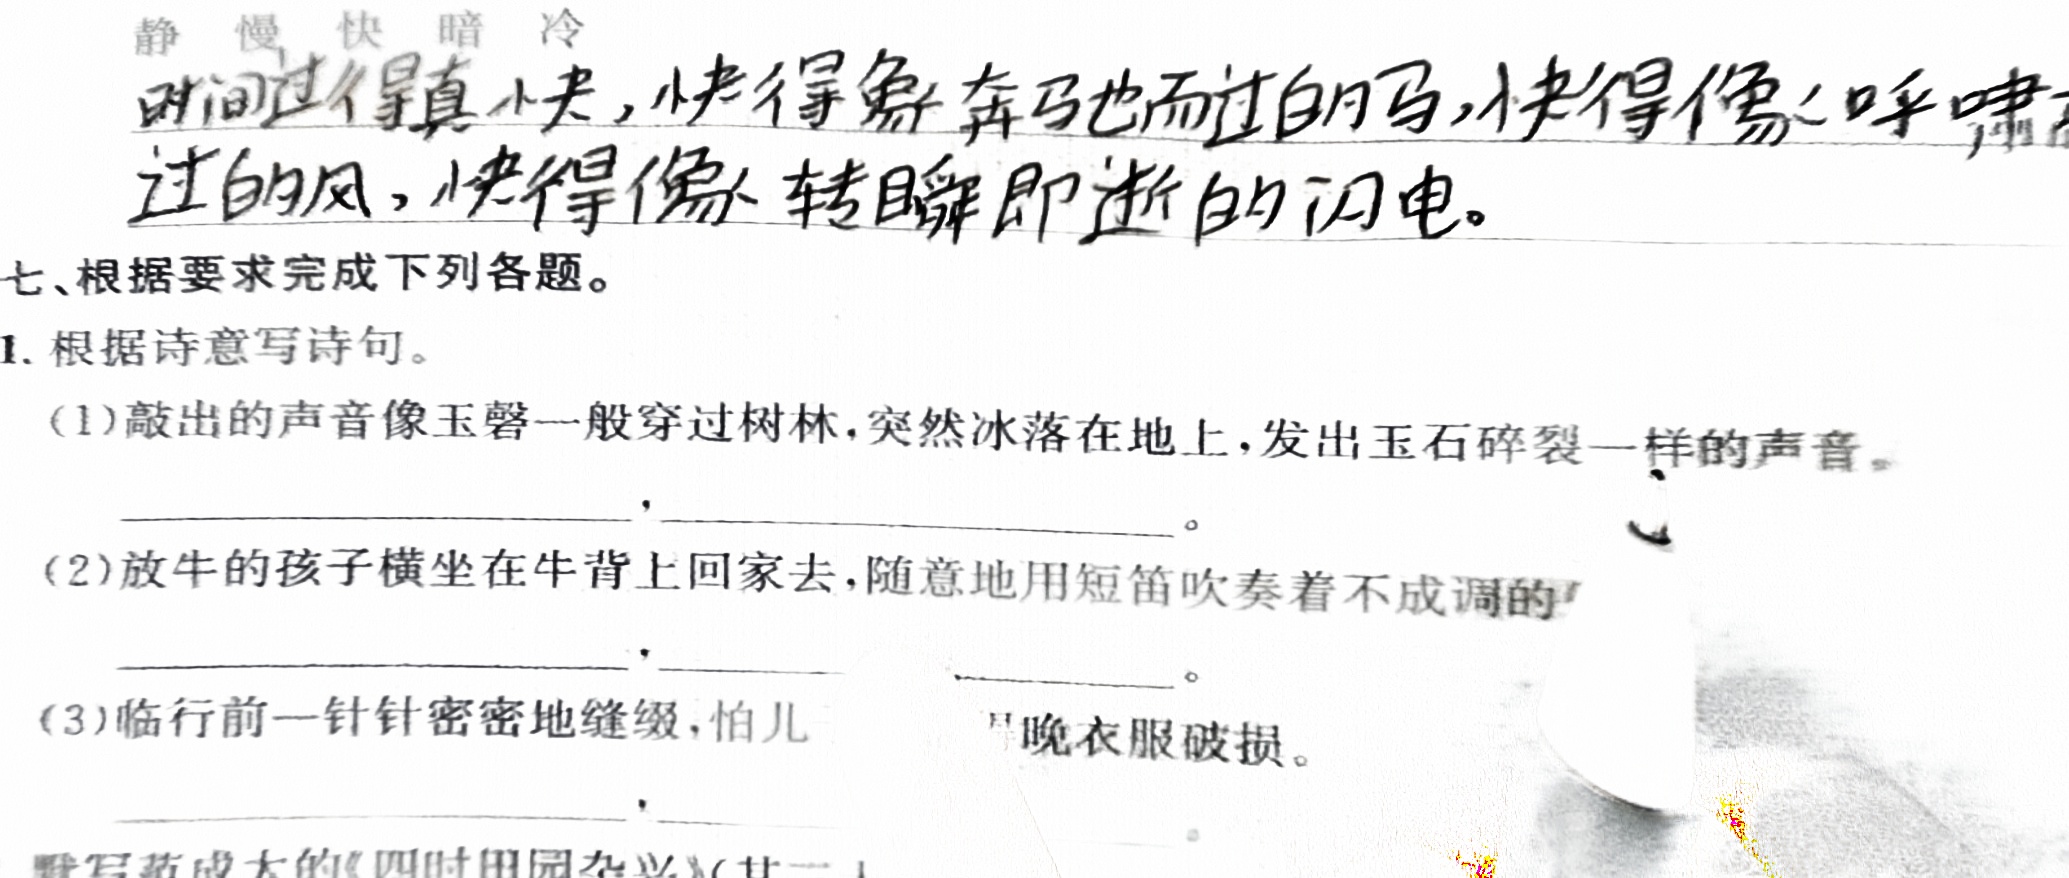 静 慢 快 暗 冷
时间过得真快，快得象奔驰而过的马，快得像呼啸
过的风，快得像转瞬即逝的闪电。
七、根据要求完成下列各题。
1. 根据诗意写诗句。
(1)敲出的声音像玉磬一般穿过树林，突然冰落在地上，发出玉石碎裂一样的声音。
，。
(2)放牛的孩子横坐在牛背上回家去，随意地用短笛吹奏着不成调的
，。
(3)临行前一针针密密地缝缀，怕儿 晚衣服破损。
，。
默写范成大的《四时田园杂兴》(其二